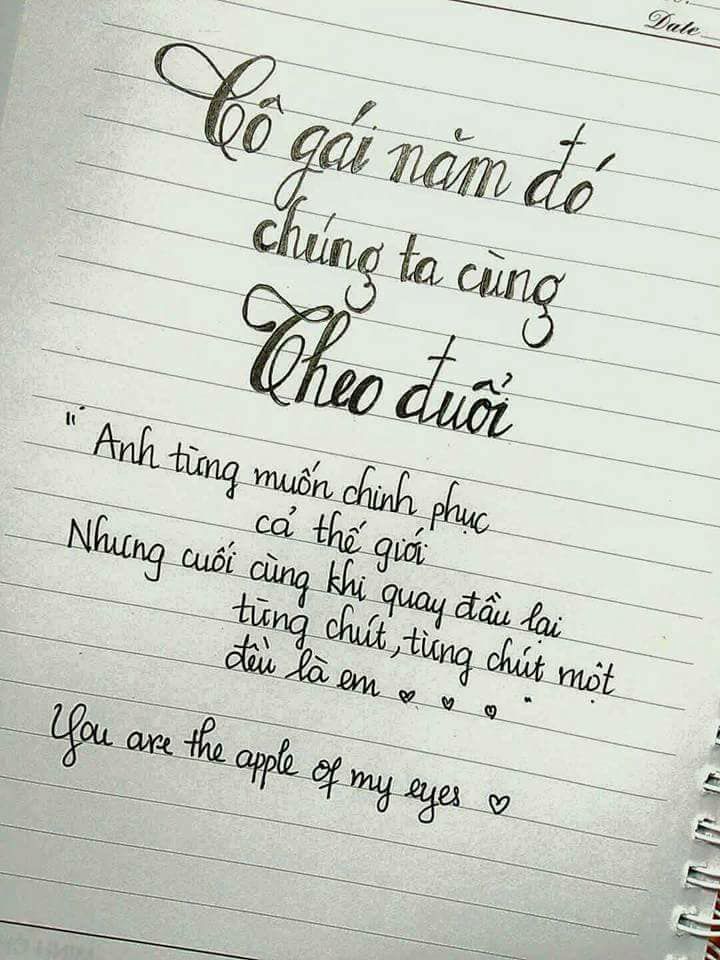 Date
Cô gái năm đó
chúng ta cùng
Theo đuổi
" Anh từng muốn chinh phục
cả thế giới
Nhưng cuối cùng khi quay đầu lại
từng chút, từng chút một
đều là em ♡ ♡ ♡ "
You are the apple of my eyes ♡